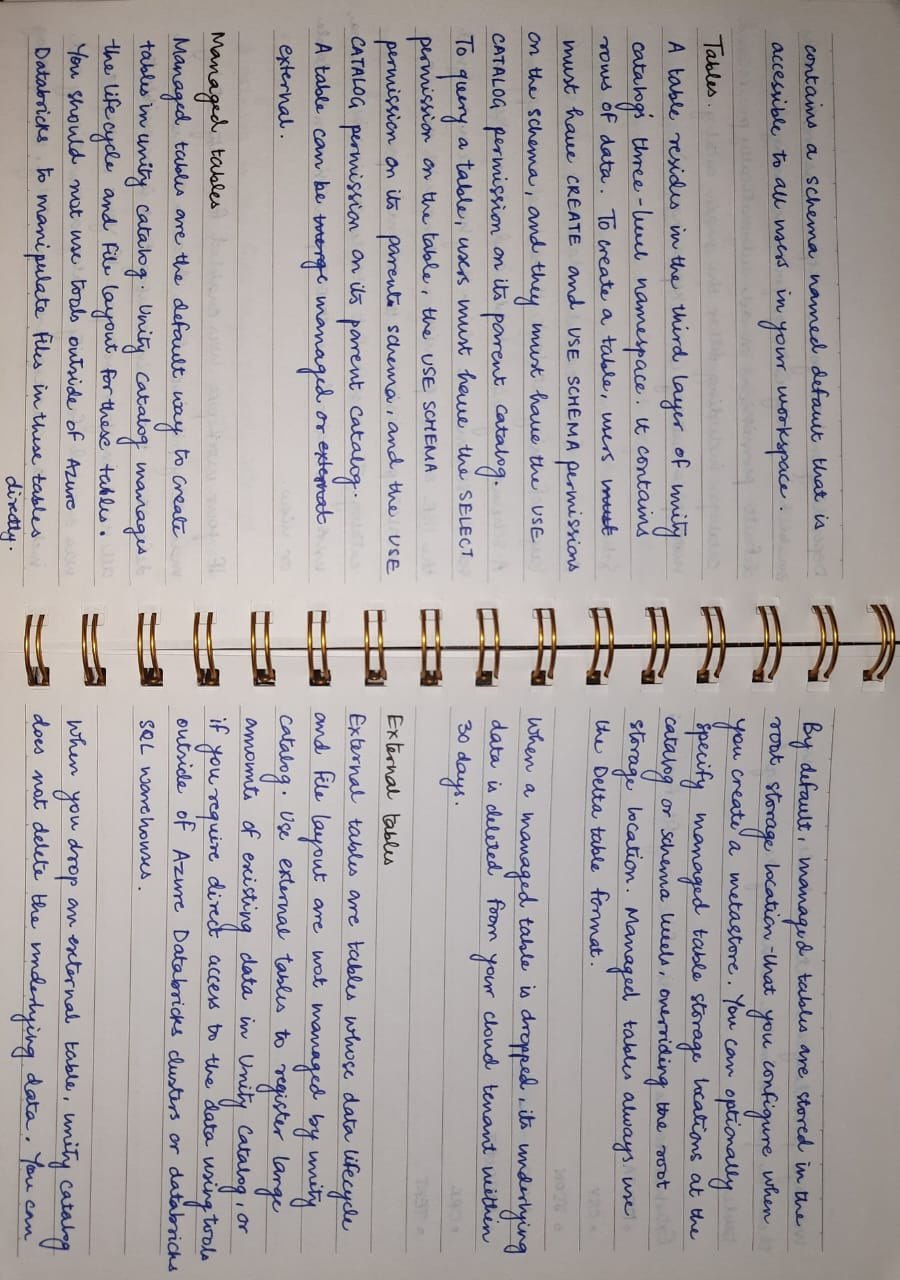 contains a schema named default that is
accesible to all users in your workspace.
Tables.
A table resides in the third layer of unity
catalogs' three-level namespace. It contains
rows of data. To create a table, users must
must have CREATE and USE SCHEMA permissions
on the schema, and they must have the USE
CATALOG permission on its parent catalog.
To query a table, users must have the SELECT
permission on the table, the USE SCHEMA
permission on its parents schema, and the USE
CATALOG permission on its parent catalog.
A table can be merge managed or extrnal
external.
Managed tables
Managed tables are the default way to create
tables in unity catalog. Unity catalog manages
the lifecycle and file layout for these tables.
You should not use tools outside of Azure
Databricks to manipulate files in these tables
directly.
By default, managed tables are stored in the
root storage location that you configure when
you create a metastore. You can optionally
specify managed table storage locations at the
catalog or schema levels, overriding the root
storage location. Managed tables always use
the Delta table format.
When a managed table is dropped, its underlying
data is deleted from your cloud tenant within
30 days.
External tables
External tables are tables whose data lifecycle
and file layout are not managed by unity
catalog. Use external tables to register large
amounts of existing data in Unity Catalog, or
if you require direct access to the data using tools
outside of Azure Databricks clusters or databricks
SQL warehouses.
When you drop an external table, unity catalog
does not delete the underlying data. You can